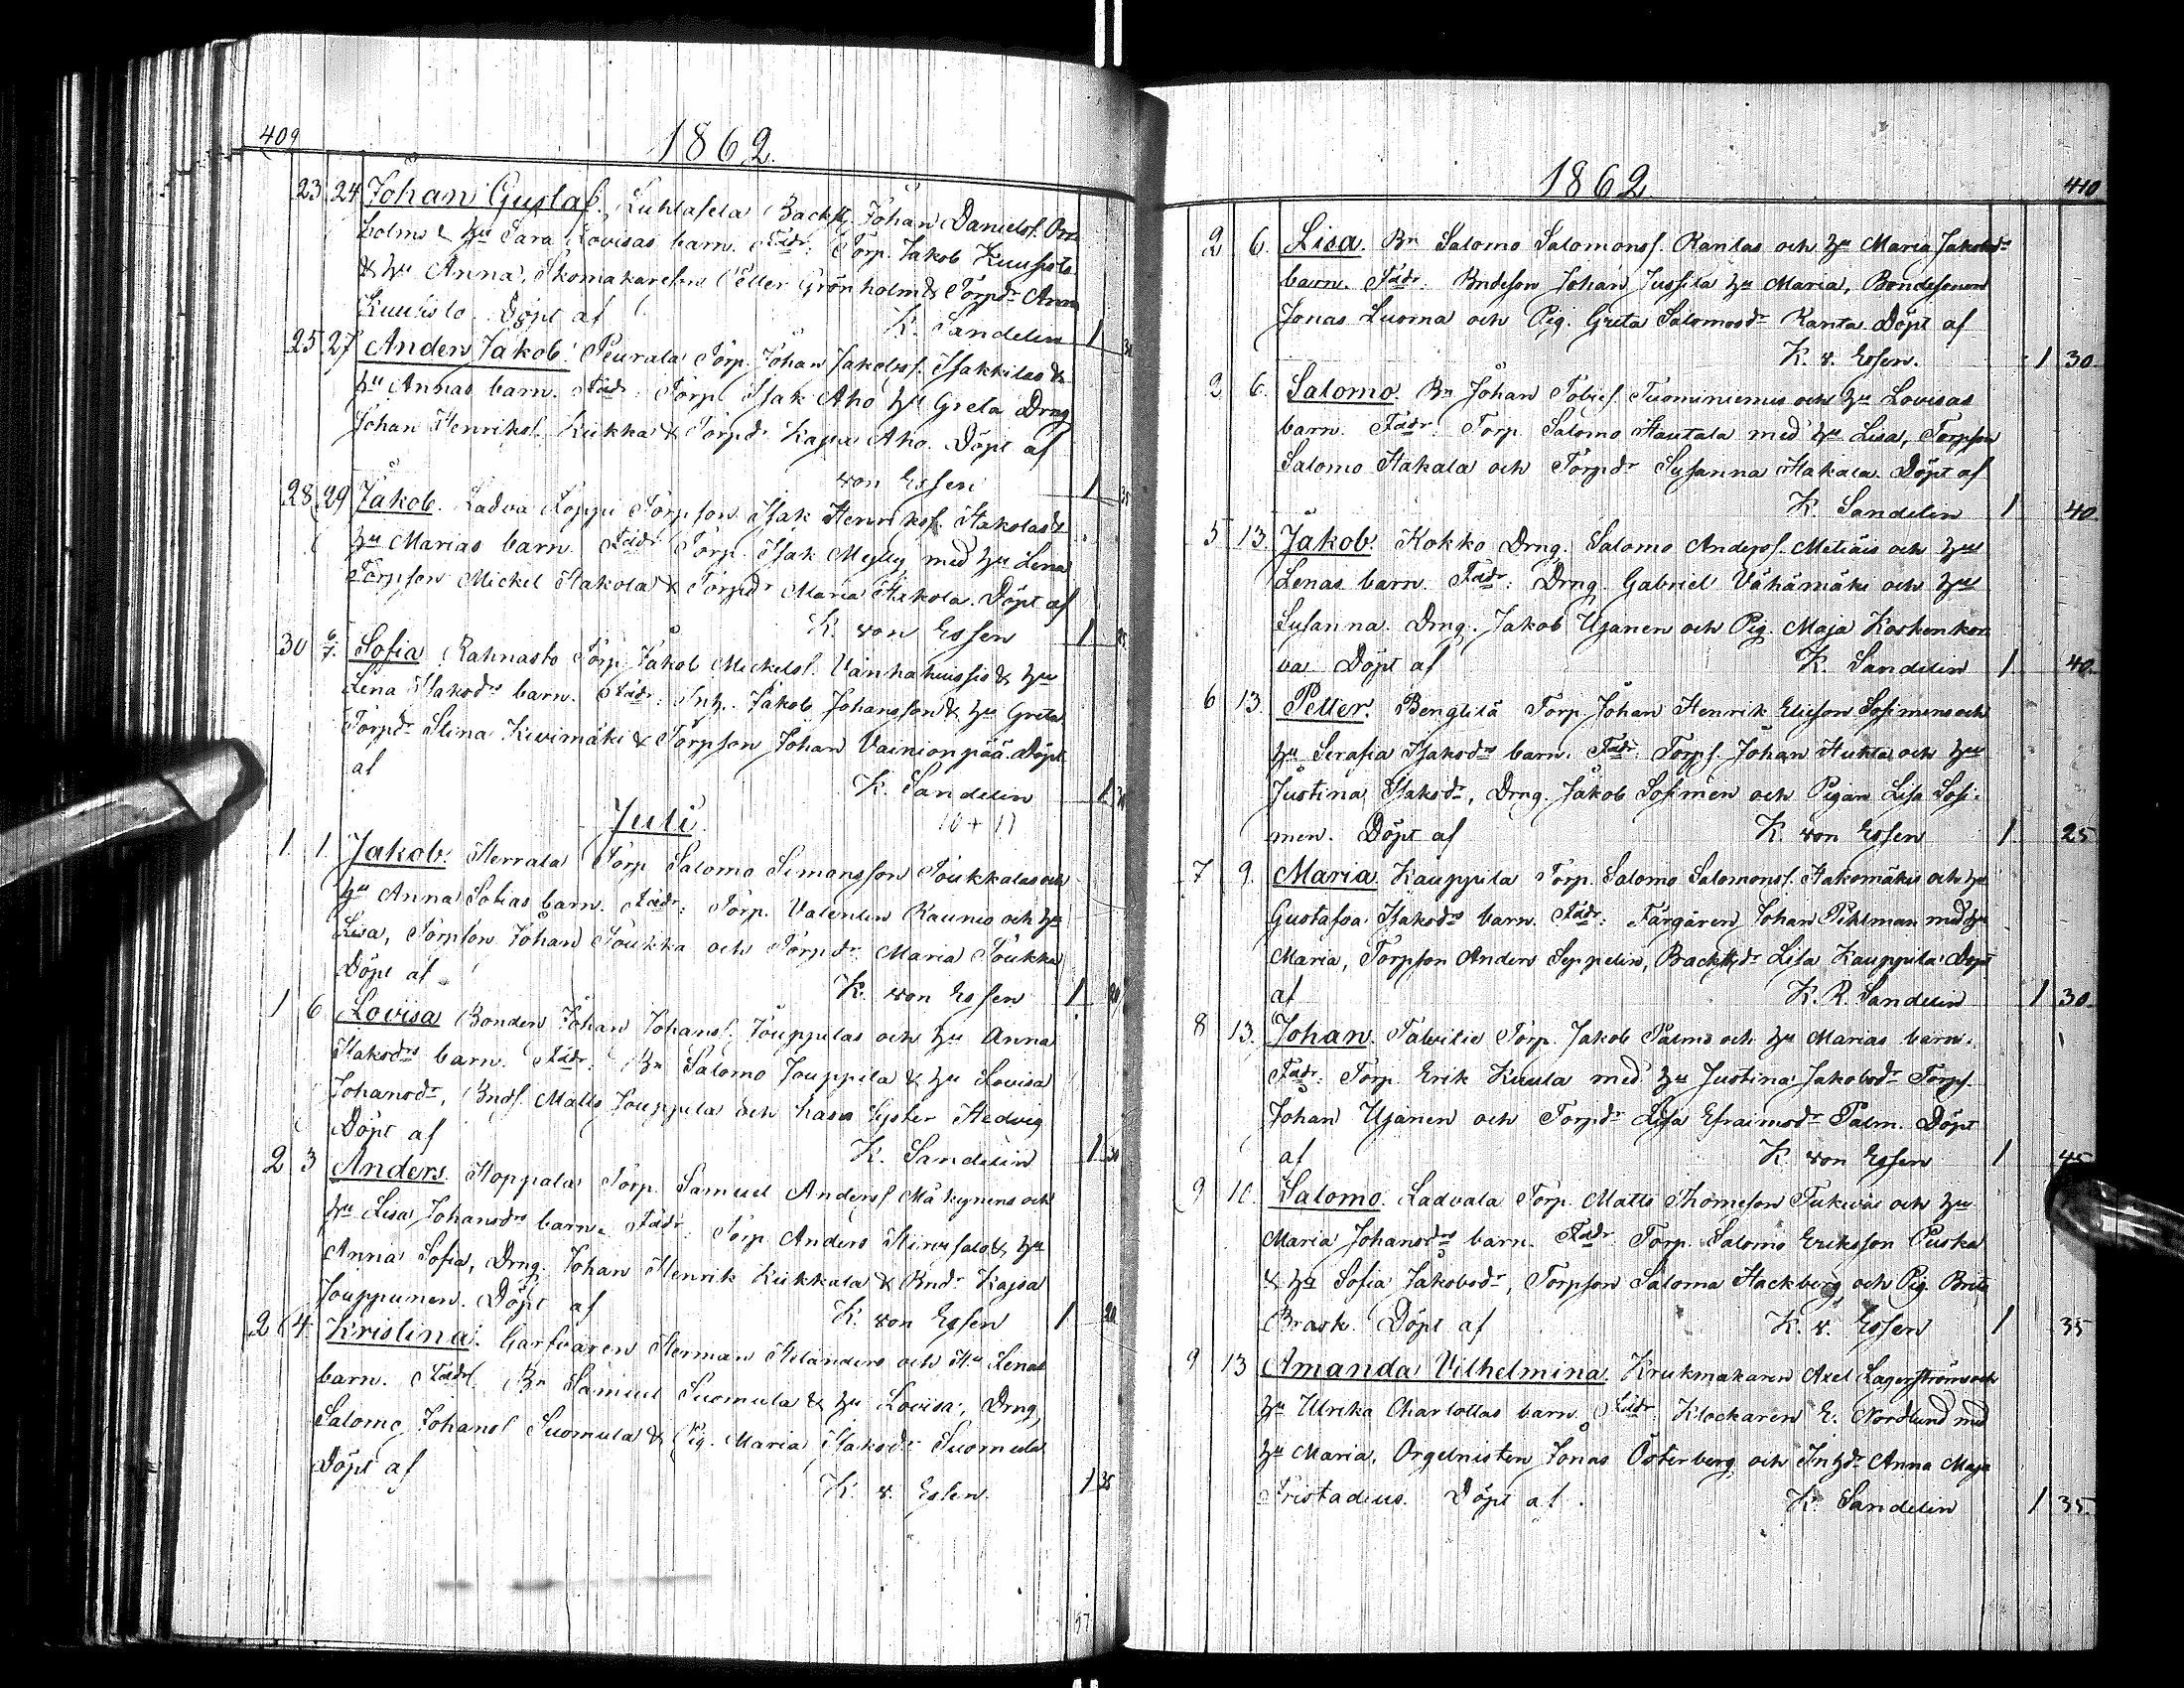 409
1862.
23. 24. Johan Gustaf. Luhtasela Backst. Johan Danielss. Ore-
holms & hu Sara Lovisas barn. Fadr: Torp. Jakob Kuusisto
& hu Anna, Skomakaren Petter Grönholm & Torpdr Anna
Kuusisto. Döpt af K. Sandelin 1
25. 27 Anders Jakob. Peurala Torp. Johan Jakobss. Isakkilas &
hu Annas barn. Fadr: Torp. Isak Aho hu Greta Drng
Johan Henrikss. Kiikka & Torpdr Kajsa Aho. Döpt af
von Essen 1 35
28. 29 Jakob. Ladva Loppi Torpson Isak Henrikss. Hakolas &
hu Marias barn. Fadr: Torp. Isak Mylly med hu Lena
Torpson Mickel Hakola & Torpdr Maria Hakola. Döpt af
K. von Essen 1 25
30 6/7. Sofia. Rahnasto Torp. Jakob Mickelss. Vanhahuissis & hu
Lena Isaksdrs barn. Fadr: Inh. Jakob Johansson & hu Greta
Torpdr Stina Kivimäki & Torpson Johan Vainionpää. Döpt
af K. Sandelin 1
Juli. 10 + 11
1. 1. Jakob. Herrala Torp. Salomo Simonsson Toukkalas och
hu Anna Sofias barn. Fadr: Torp. Valentin Kaunis och hu
Lisa, Torpson Johan Toukka och Torpdr Maria Toukka
Döpt af K. von Essen 1.
1 6 Lovisa Bonden Johan Johanss. Jouppilas och hu Anna
Isaksdrs barn. Fadr: Bn Salomo Jouppila & hu Lovisa
Johansdr, Bnds. Matts Jouppila och hans syster Hedvig
Döpt af K. Sandelin 1 30
2 3 Anders. Hoppala Torp. Samuel Anderss Mäkynens och
hu Lisa Johansdrs barn. Fadr: Torp Anders Hirvisalo & hu
Anna Sofia, Drng. Johan Henrik Kiikkala & Bndr Kajsa
Jouppunen. Döpt af K. von Essen 1 20
2 4 Kristina. Garfvaren Herman Helanders och Hu Lenas
barn. Fadr. Bn Samuel Suomula & hu Lovisa, Drng,
Salomo Johanss Suomula & Pig. Maria Isaksdr Suomula
Döpt af K. v. Essen. 1 35
57
1862. 410
2 6. Lisa. Bn Salomo Salomonss. Rantas och hu Maria Jakobsdrs
barn. Fadr: Bndeson Johan Jussila hu Maria, Bondesonen
Jonas Luoma och Pig. Greta Salomosdr Ranta Döpt af
K. v. Essen. 1 30.
2 6. Salomo. Bn Johan Tobiess. Tuominiemis och hu Lovisas
barn. Fadr: Torp. Salomo Hautala med hu Lisa, Torpson
Salomo Hakala och Torpdr Susanna Hakala. Döpt af
K. Sandelin 1 40.
5 13. Jakob. Kokko Drng. Salomo Anderss. Metiäis och hu
Lenas barn. Fadr: Drng. Gabriel Vähämäki och hu
Susanna. Drng. Jakob Ujanen och Pig. Maja Koskenkor-
va Döpt af K. Sandelin 1. 40.
6 13. Petter. Benglilä Torp. Johan Henrik Elieson Sosimens och
hu Serafia Isaksdrs barn. Fadr: Torps. Johan Huhta och hu
Justina Isaksdr, Drng. Jakob Sosimen och Pigan Lisa Sosi-
men. Döpt af K. von Essen 1. 25
7 9. Maria. Kauppila Torp. Salomo Salomonss. Hakomäkis och hu
Gustafva Isaksdrs barn. Fadr: Färgaren Johan Pihlman med hu
Maria, Torpson Anders Seppelin, Backstdr Lisa Kauppila. Döpt
af K. R. Sandelin 1 30.
8 13. Johan. Talvilie Torp. Jakob Palms och hu Marias barn.
Fadr: Torp. Erik Kuula med hu Justina Jakobsdr Torps.
Johan Ujanen och Torpdr Lisa Efraimsdr Palm. Döpt
af K. von Essen 1 45
9 10. Salomo. Ladvala Torp. Matts Thomeson Tukevas och hu
Maria Johansdrs barn. Fadr Torp. Salomo Eriksson Puska
& hu Sofia Jakobsdr, Torpson Salomo Hackberg och Pig. Brita
Brask. Döpt af K. v. Essen 1 35
9 13 Amanda Vilhelmina. Krukmakaren Axel Lagerströms och
hu Ulrika Charlottas barn. Fadr. Klockaren E. Nordlund med
hu Maria, Orgelnisten Jonas Österberg och Inhdr Anna Maja
Fristadius. Döpt af. K. Sandelin 1 35.